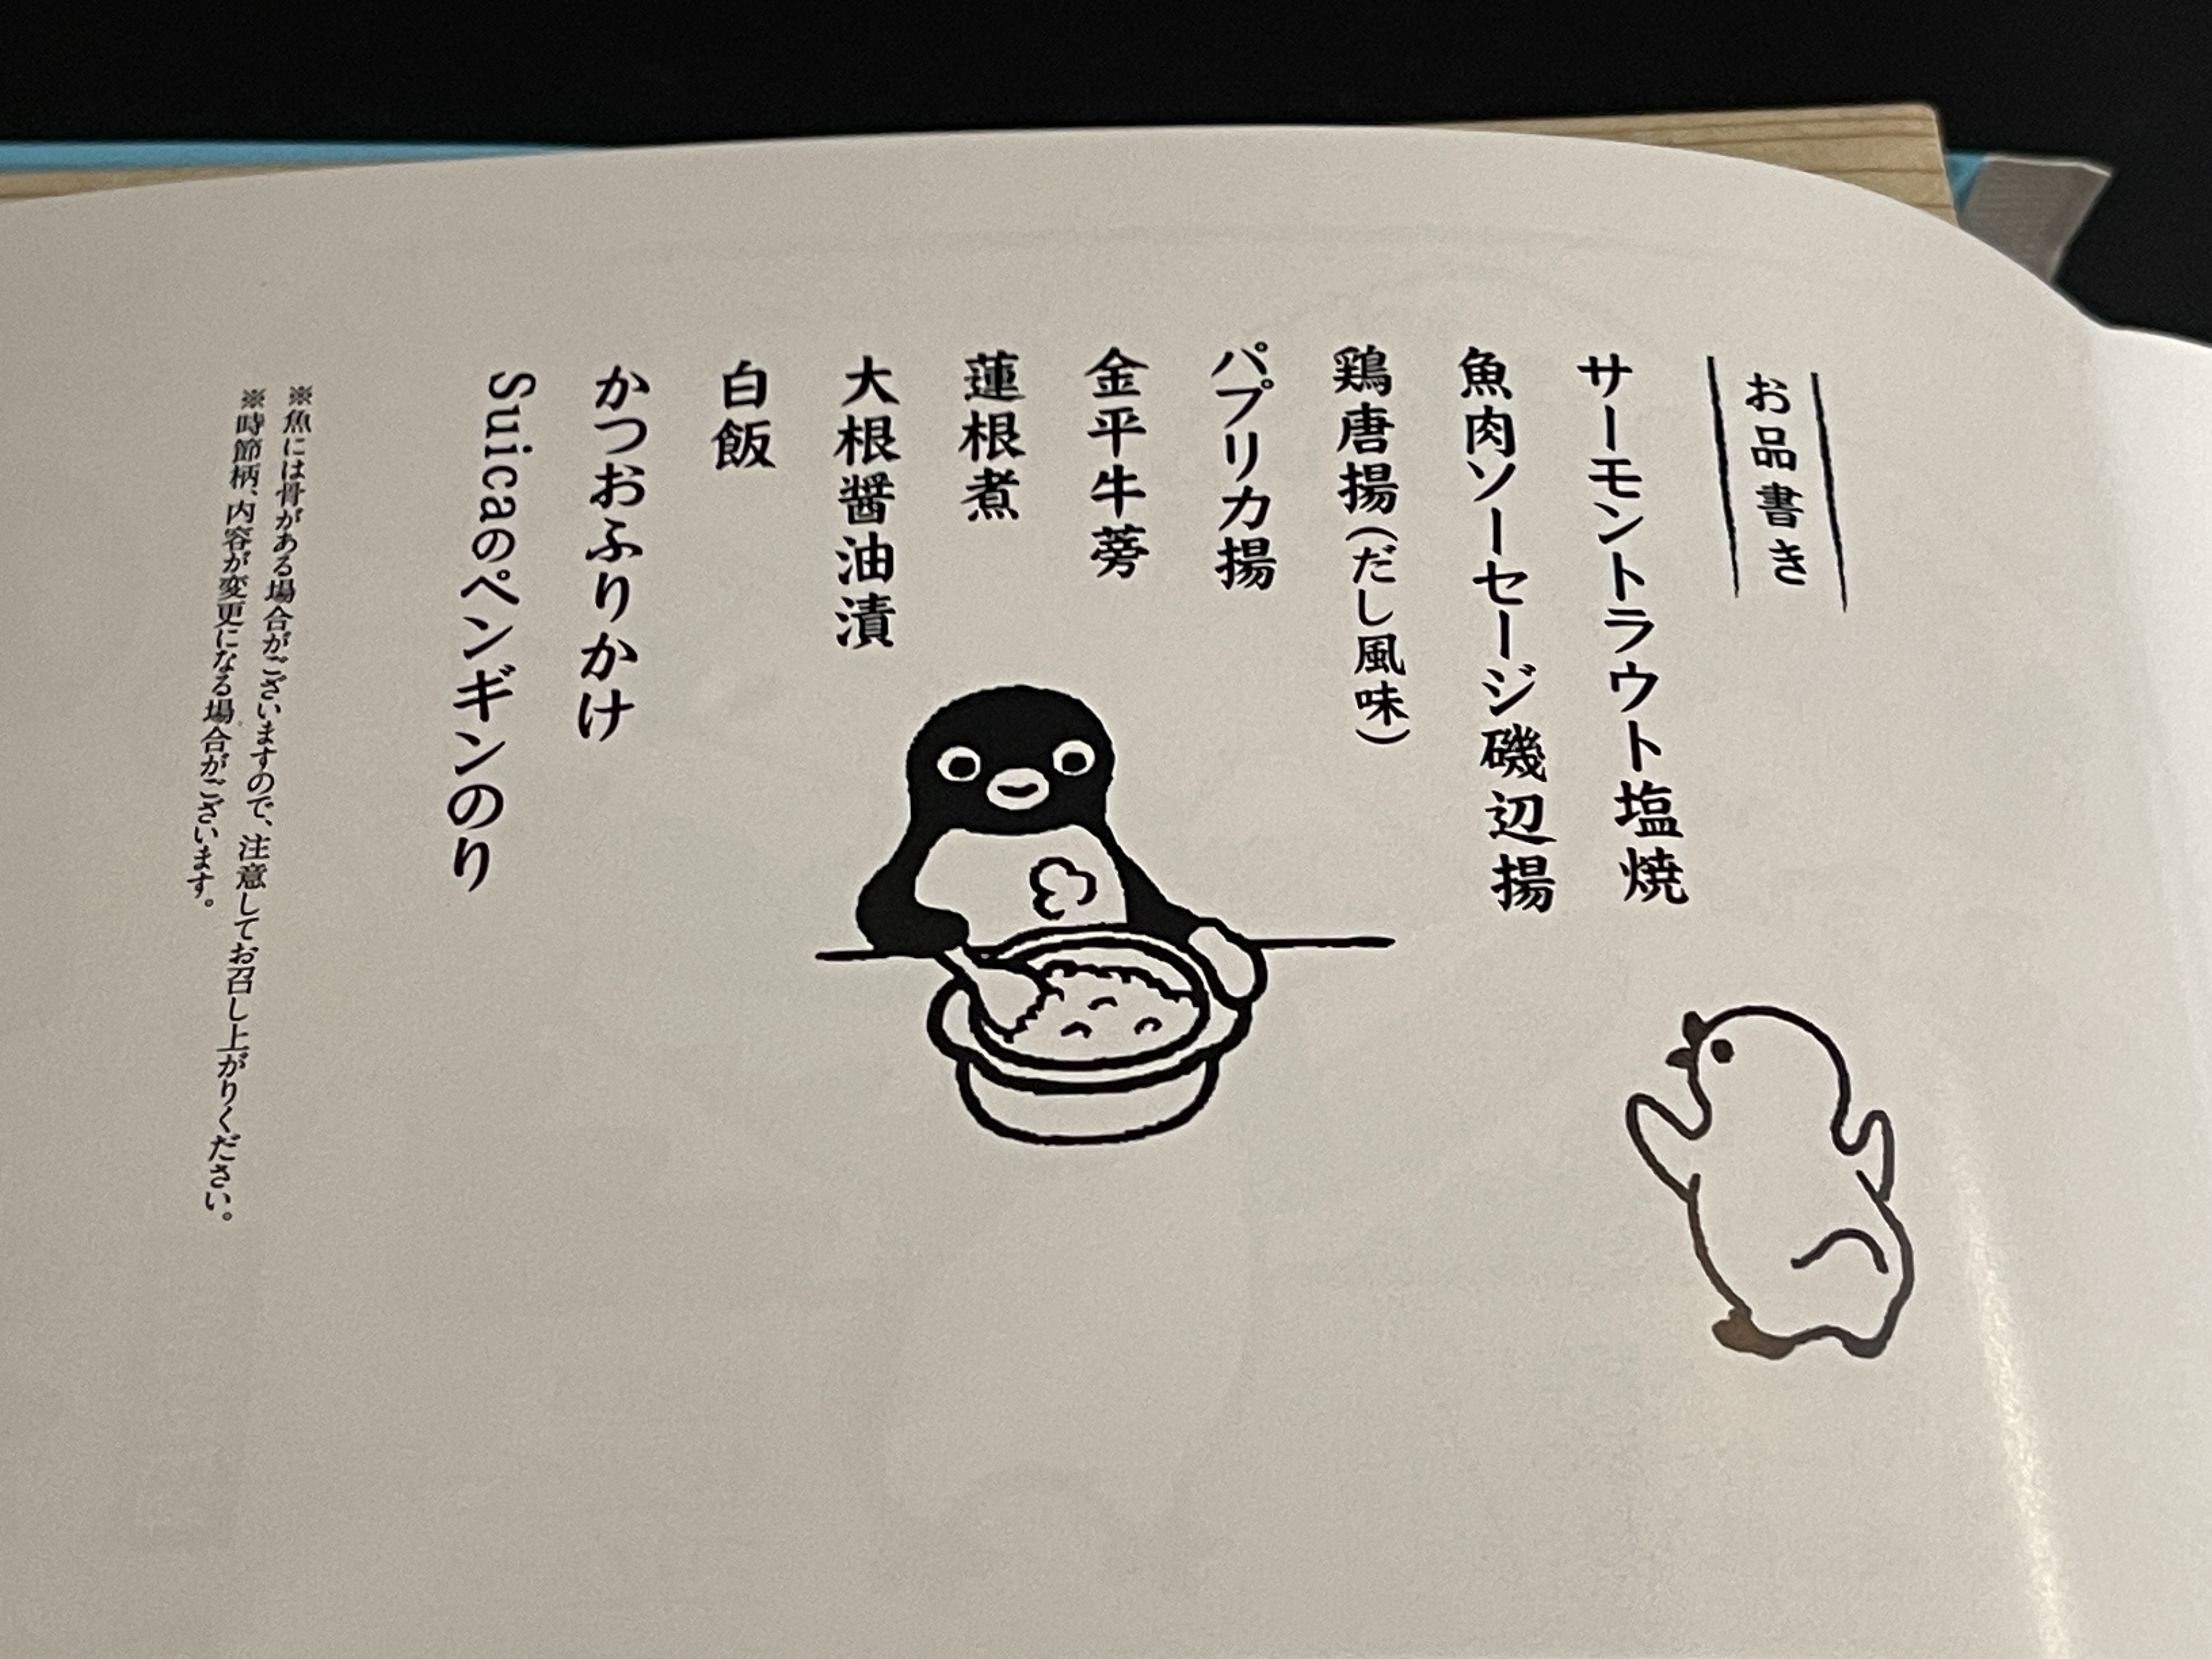 お品書き
サーモントラウト塩焼
魚肉ソーセージ磯辺揚
鶏唐揚（だし風味）
パプリカ揚
金平牛蒡
蓮根煮
大根醤油漬
白飯
かつおふりかけ
Suicaのペンギンのり
※魚には骨がある場合がございますので、注意してお召し上がりください。
※時節柄、内容が変更になる場合がございます。